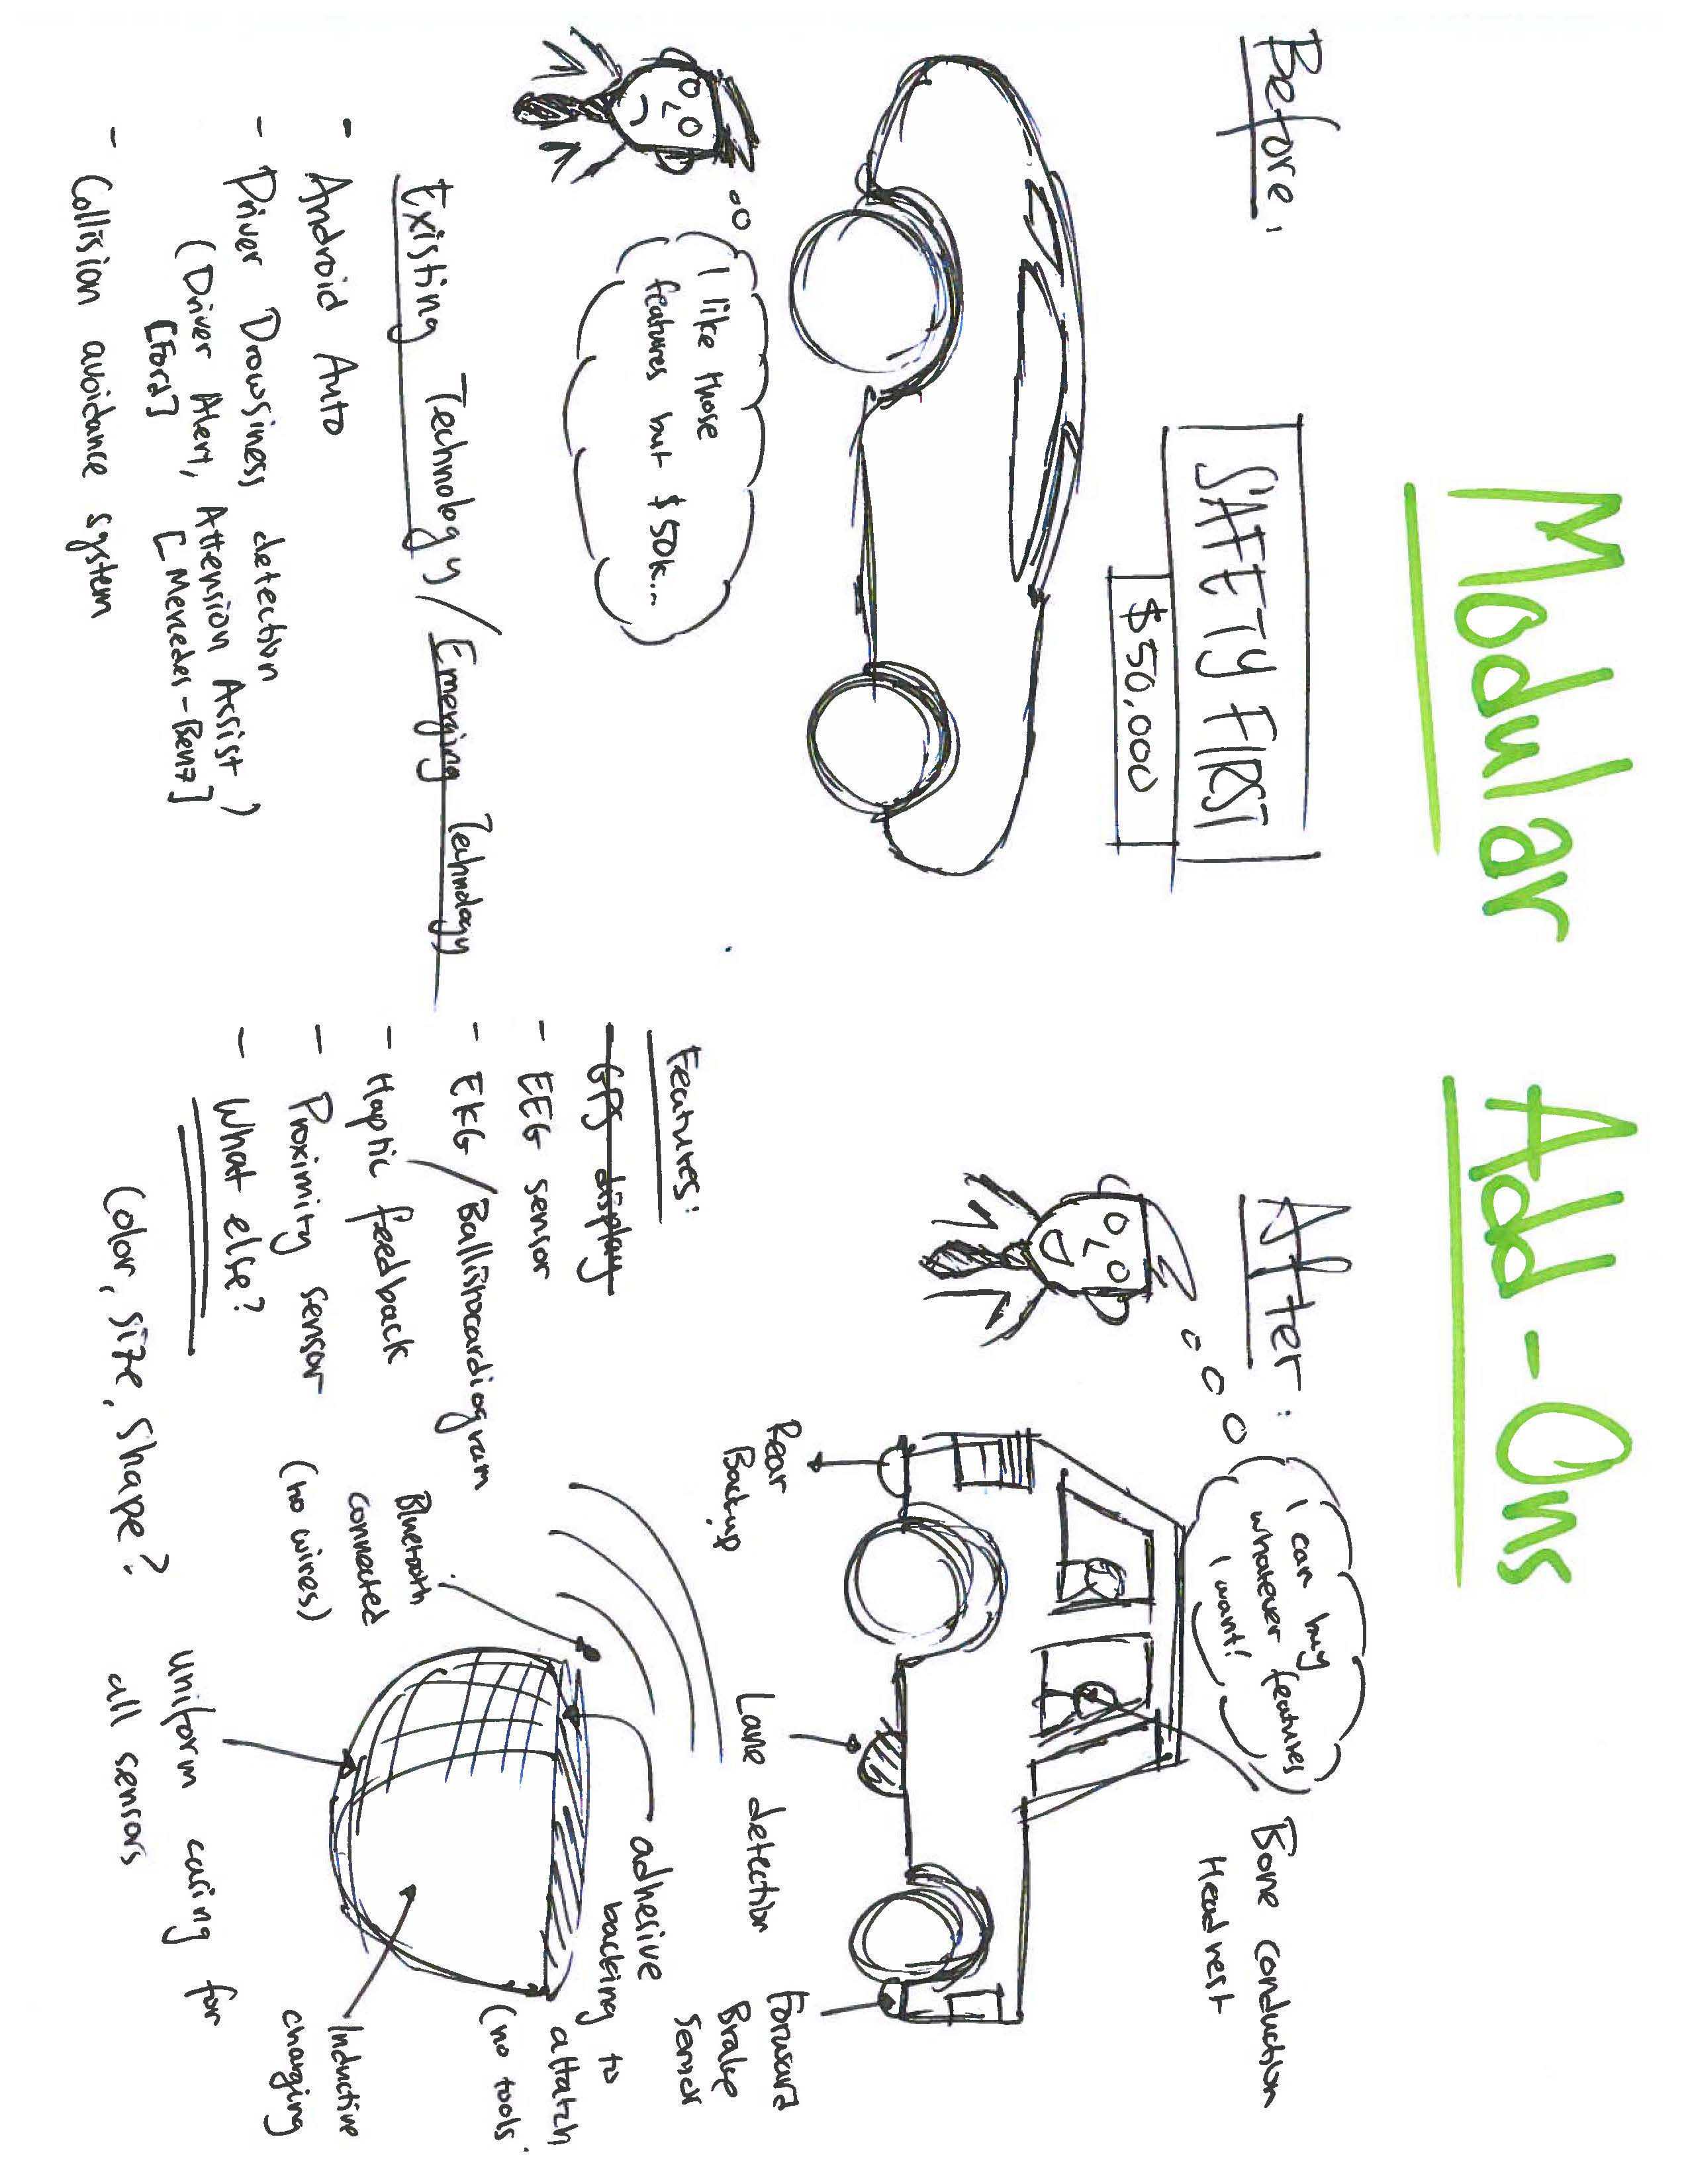 Modular Add-Ons
Before:
SAFETY FIRST
$50,000
I like those
features but $50k...
Existing Technology / Emerging Technology
- Android Auto
- Driver Drowsiness detection
(Driver Alert, Attension Assist)
[Ford] [Mercedes-Benz]
- Collision avoidance system
After:
I can buy
whatever features
I want!
Bone conduction
Headrest
Rear
Backup
Lane detection
Forward
Brake
Sensor
Features:
- GPS display
- EEG sensor
- EKG / Ballistocardiogram
- Haptic feedback
- Proximity sensor
- What else?
(Color, size, shape?
Bluetooth
connected
(no wires)
adhesive
backing to
attatch
(no tools
uniform casing for
all sensors
Inductive
charging